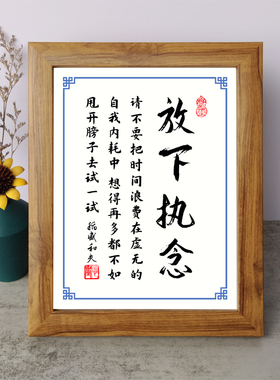 放下执念
请不要把时间浪费在虚无的
自我内耗中 想得再多都不如
甩开膀子去试一试
稻盛和夫